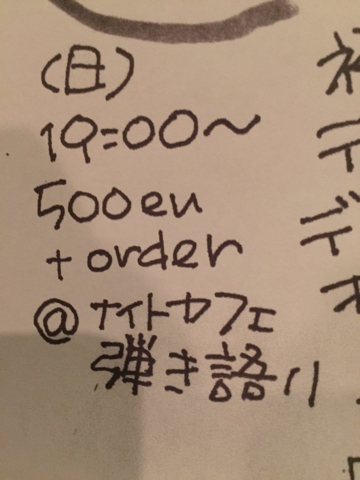 (日)
19:00〜
500en
+ order
@ナイトカフェ
弾き語り